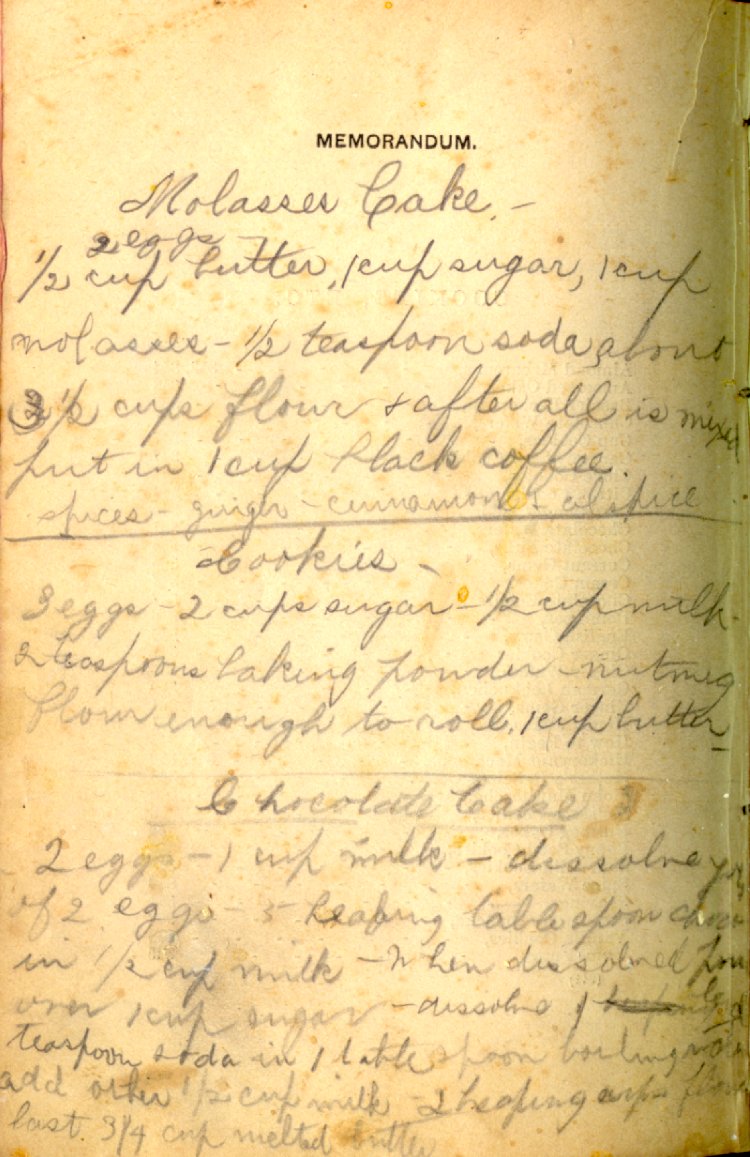 MEMORANDUM.
Molasses Cake. -
2 eggs -
1/2 cup butter, 1 cup sugar, 1 cup
molasses - 1/2 teaspoon soda, about
1/2 cups flour & after all is mixed
put in 1 cup black coffee.
spices - ginger - cinnamon & alspice
Cookies -
3 eggs - 2 cups sugar - 1/2 cup milk -
2 teaspoons baking powder - nutmeg
flour enough to roll. 1 cup butter
Chocolate Cake
2 eggs - 1 cup milk - dissolve
of 2 eggs - 5 heaping table spoon
in 1/2 cup milk - When dissolved
over 1 cup sugar - dissolve 1
teaspoon soda in 1 table spoon boiling
add other 1/2 cup milk - 2 heaping cups
last. 3/4 cup melted butter